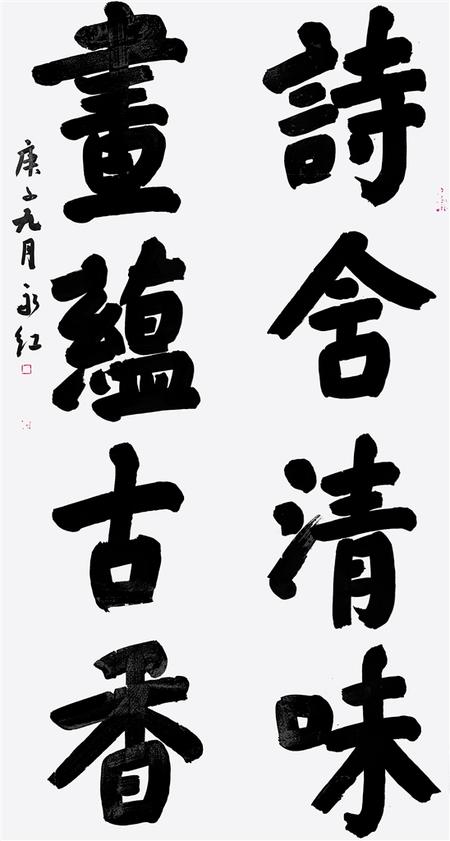 詩含清味
畫蘊古香
庚子九月 永红